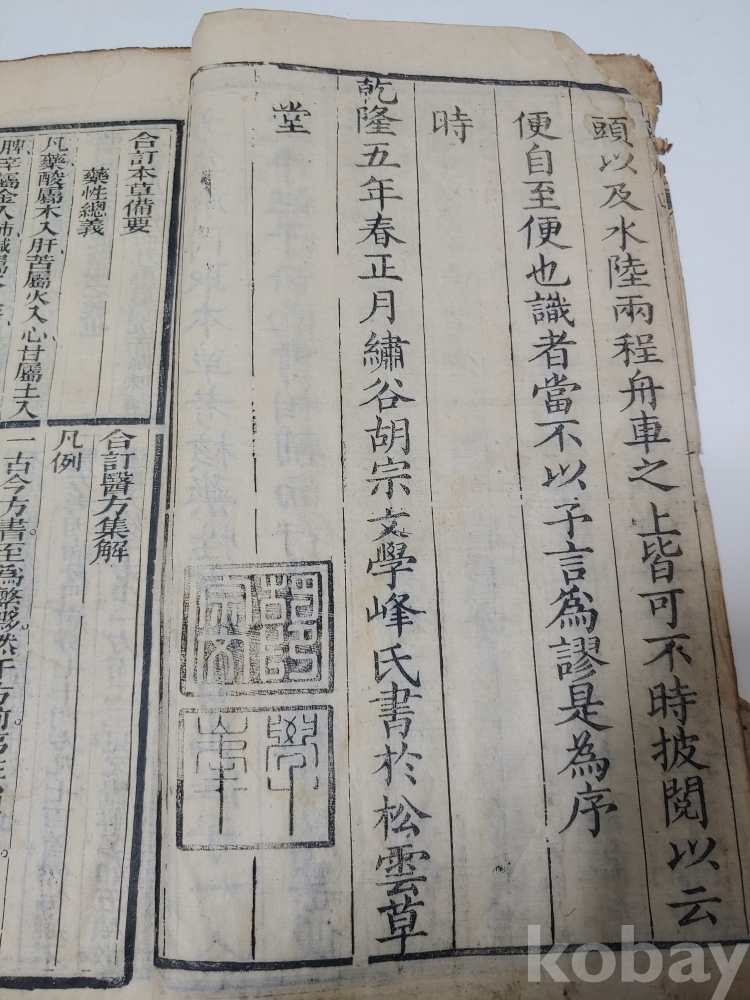 頭以及水陸兩程舟車之上皆可不時披閱以云
便自至便也識者當不以予言為謬是為序
時
乾隆五年春正月繡谷胡宗文學峰氏書於松雲草
堂
胡宗文印
學峰
合訂本草備要
藥性總義
凡藥酸屬木入肝苦屬火入心甘屬土入
脾辛屬金入肺鹹屬水
合訂醫方集解
凡例
一古今方書至為繁夥然于方前
kobay